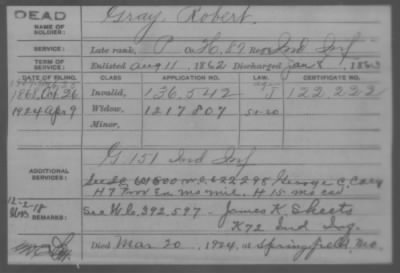 DEAD
NAME OF SOLDIER: Gray, Robert.
SERVICE: Late rank, P Co H, 87 Ind Inf
TERM OF SERVICE: Enlisted Aug 11, 1862 Discharged Jan 8, 1863
DATE OF FILING. CLASS APPLICATION NO. LAW. CERTIFICATE NO.
1868, Oct 26 Invalid, 136,542 122,222
1924 Apr 9 Widow, 1217807 5-1-20
Minor,
ADDITIONAL SERVICES: G 151 Ind Inf
See George C. Cary
H 7 En Mo Mil. H 15 Mo Cav
12-2-18
REMARKS: See W.C. 392,597. James K. Sheets
K 72 Ind Inf.
Died Mar 20, 1924, at Springfield, Mo.